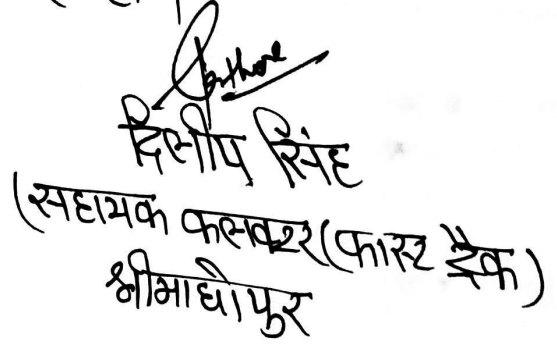 दिलीप सिंह
(सहायक कलक्टर (फास्ट ट्रैक)
श्रीमाधोपुर